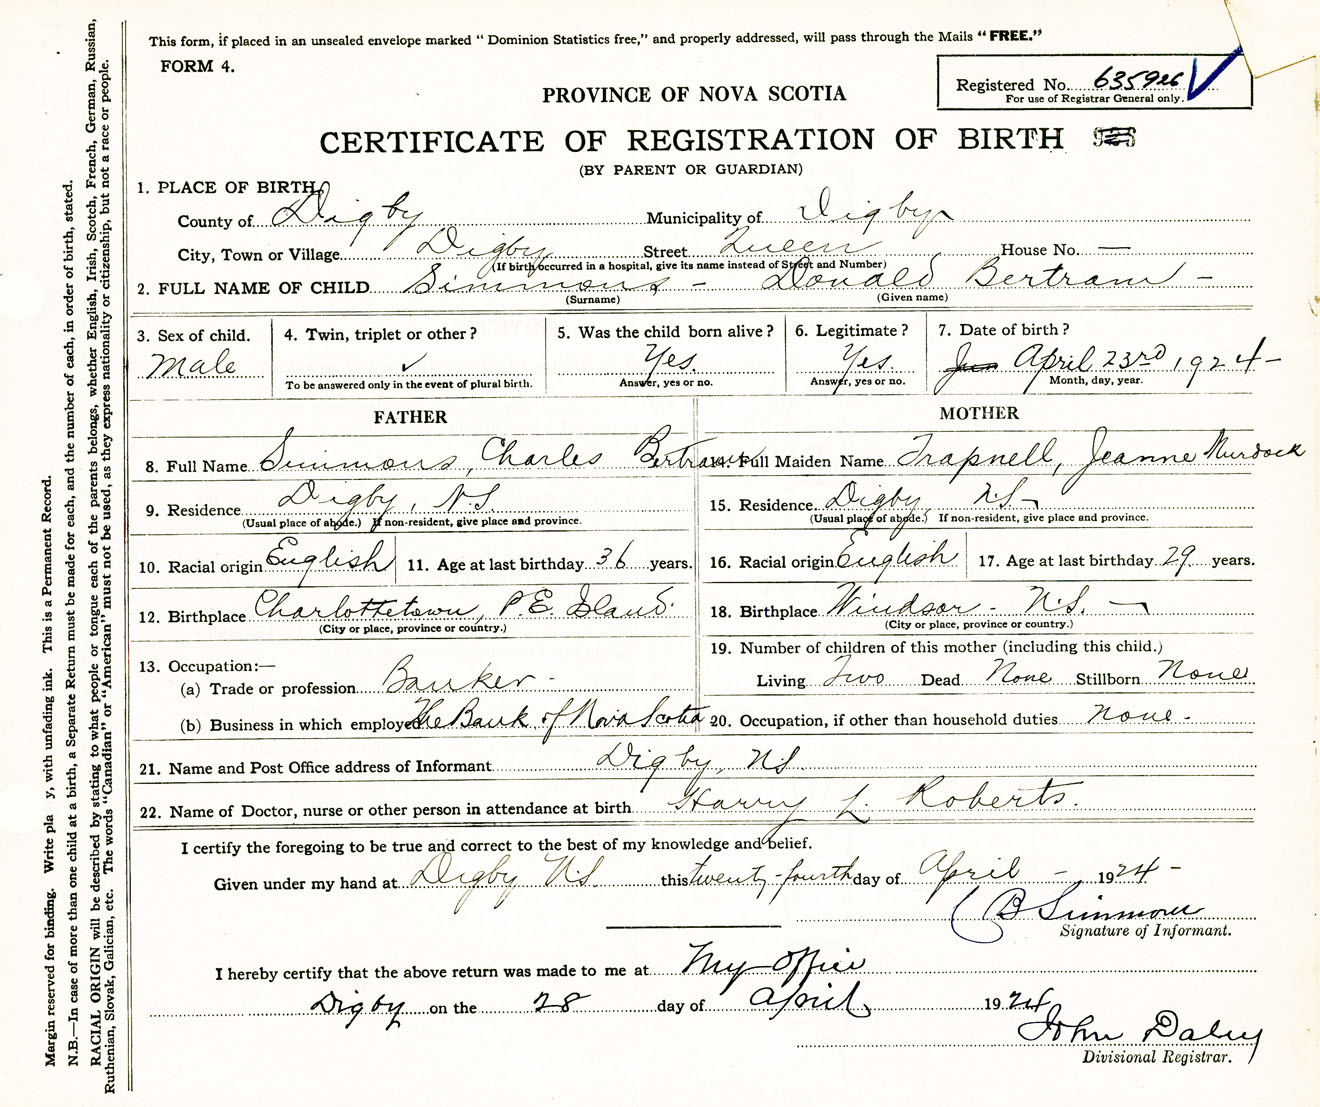 This form, if placed in an unsealed envelope marked “ Dominion Statistics free,” and properly addressed, will pass through the Mails “ FREE.”
FORM 4.
Registered No. 635926
For use of Registrar General only.
PROVINCE OF NOVA SCOTIA
CERTIFICATE OF REGISTRATION OF BIRTH
(BY PARENT OR GUARDIAN)
1. PLACE OF BIRTH
County of Digby Municipality of Digby
City, Town or Village Digby Street Queen House No. —
(If birth occurred in a hospital, give its name instead of Street and Number)
2. FULL NAME OF CHILD Simmons - Donald Bertram -
(Surname) (Given name)
3. Sex of child. Male
4. Twin, triplet or other? ✓
To be answered only in the event of plural birth.
5. Was the child born alive? Yes.
Answer, yes or no.
6. Legitimate? Yes.
Answer, yes or no.
7. Date of birth? April 23rd 1924-
Month, day, year.
FATHER
8. Full Name Simmons, Charles Bertram
9. Residence Digby, N.S.
(Usual place of abode.) If non-resident, give place and province.
10. Racial origin English 11. Age at last birthday 36 years.
12. Birthplace Charlottetown, P.E. Island.
(City or place, province or country.)
13. Occupation:—
(a) Trade or profession Banker -
(b) Business in which employed The Bank of Nova Scotia
MOTHER
14. Full Maiden Name Trapnell, Jeanne Murdock
15. Residence Digby, N.S.
(Usual place of abode.) If non-resident, give place and province.
16. Racial origin English 17. Age at last birthday 29 years.
18. Birthplace Windsor - N.S.
(City or place, province or country.)
19. Number of children of this mother (including this child.)
Living Two Dead None Stillborn None
20. Occupation, if other than household duties none -
21. Name and Post Office address of Informant Digby, N.S.
22. Name of Doctor, nurse or other person in attendance at birth Harry L. Roberts.
I certify the foregoing to be true and correct to the best of my knowledge and belief.
Given under my hand at Digby N.S. this twenty-fourth day of April - 1924 -
C B Simmons
Signature of Informant.
I hereby certify that the above return was made to me at My office
Digby on the 28 day of April 1924
John Daley
Divisional Registrar.
Margin reserved for binding. Write pla y, with unfading ink. This is a Permanent Record.
N.B.—In case of more than one child at a birth, a Separate Return must be made for each, and the number of each, in order of birth, stated.
RACIAL ORIGIN will be described by stating to what people or tongue each of the parents belongs, whether English, Irish, Scotch, French, German, Russian,
Ruthenian, Slovak, Galician, etc. The words “Canadian” or “American” must not be used, as they express nationality or citizenship, but not a race or people.